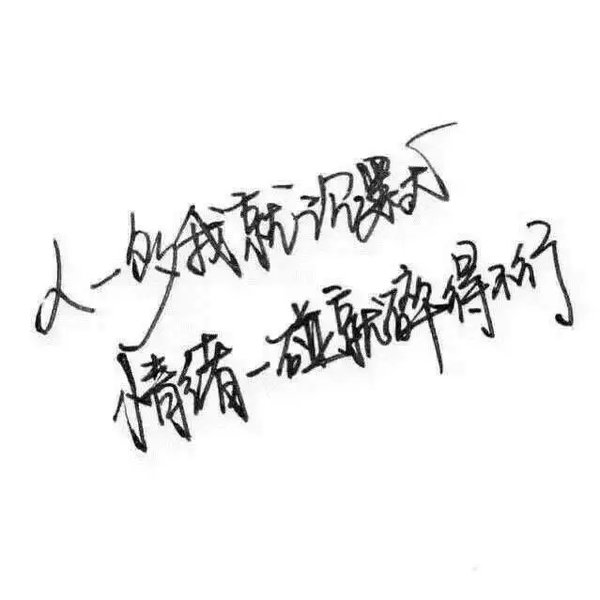 人一我就沉
情绪一碰就碎得不行